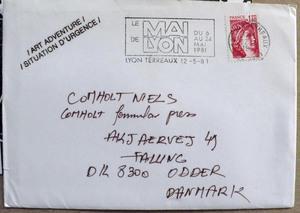 / ART ADVENTURE /
/ SITUATION D'URGENCE /
LE MAI DE LYON
DU 6
AU 24
MAI
1981
LYON TERREAUX 12-5-81
COMHOLT NIELS
COMHOLT formular press
AKJAERVEJ 49
FALLING
DK 8300 ODDER
DANMARK